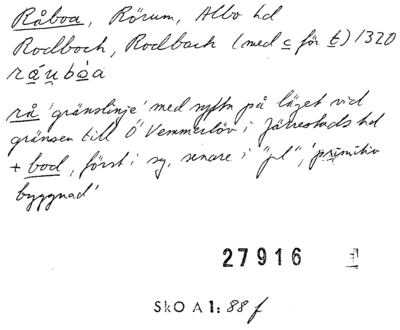 Råboa, Rörum, Albo hd
Rodboch, Rodback (med c för t) 1320
råu̯bòa
rå 'gränslinje' med syftn på läget vid
gränsen till Ö Vemmerlöv i Järrestads hd
+ bod, först i sg, senare i "pl", 'primitiv
byggnad'
27916
SkO A 1: 88 f